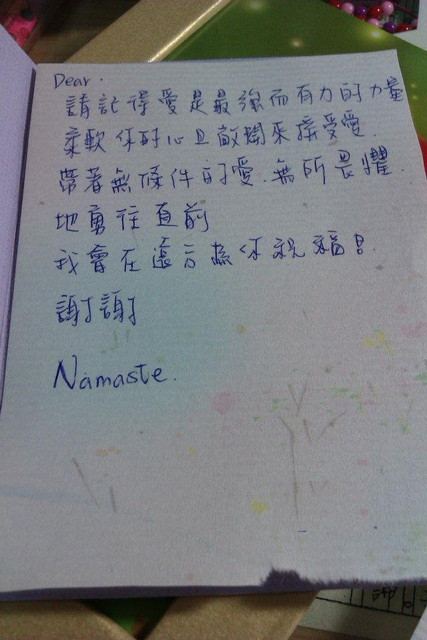 Dear.
請記得愛是最強而有力的力量
柔軟你的心且敞開來接受愛.
帶著無條件的愛.無所畏懼.
地勇往直前
我會在遠方為你祝福!
謝謝
Namaste.